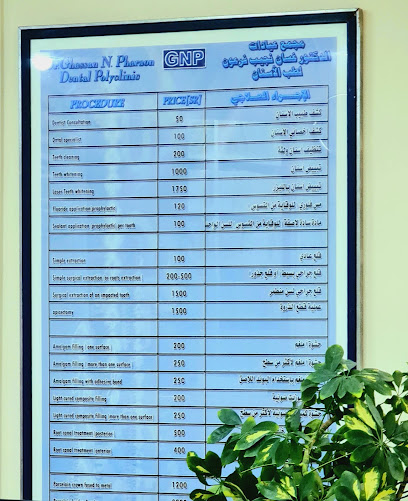 Dr Ghassan N. Pharaon
Dental Polyclinic
GNP
مجمع عيادات
الدكتور غسان نجيب فرعون
لطب الأسنان
PROCEDURE PRICE[SR] الإجراء العلاجي
Dentist Consultation 50 كشف طبيب الأسنان
Dental specialist 100 كشف أخصائي الأسنان
Teeth cleaning 200 تنظيف أسنان
Teeth whitening 1000 تبييض أسنان
Laser Teeth whitening 1750 تبييض أسنان بالليزر
Fluoride application prophylactic 100 للوقاية من التسوس
Sealant application prophylactic per teeth 100 مادة سادة لاصقة للوقاية من التسوس
Simple extraction 100 قلع عادي
Simple surgical extraction or roots extraction 200-500 قلع جراحي بسيط أو قلع جذور
Surgical extraction of an impacted tooth 1500 قلع جراحي لسن منطمر
apicectomy 1500 عملية قطع الذروة
Amalgam filling (one surface) 200 حشوة
Amalgam filling (more than one surface) 250 حشوة لأكثر من سطح
Amalgam filling with adhesive bond 250 باستخدام
Light cured composite filling 200
Light cured composite filling (more than one surface) 250 لأكثر من سطح
Root canal treatment (posterior) 500
Root canal treatment (anterior) 400
Porcelain crown fused to metal 1200